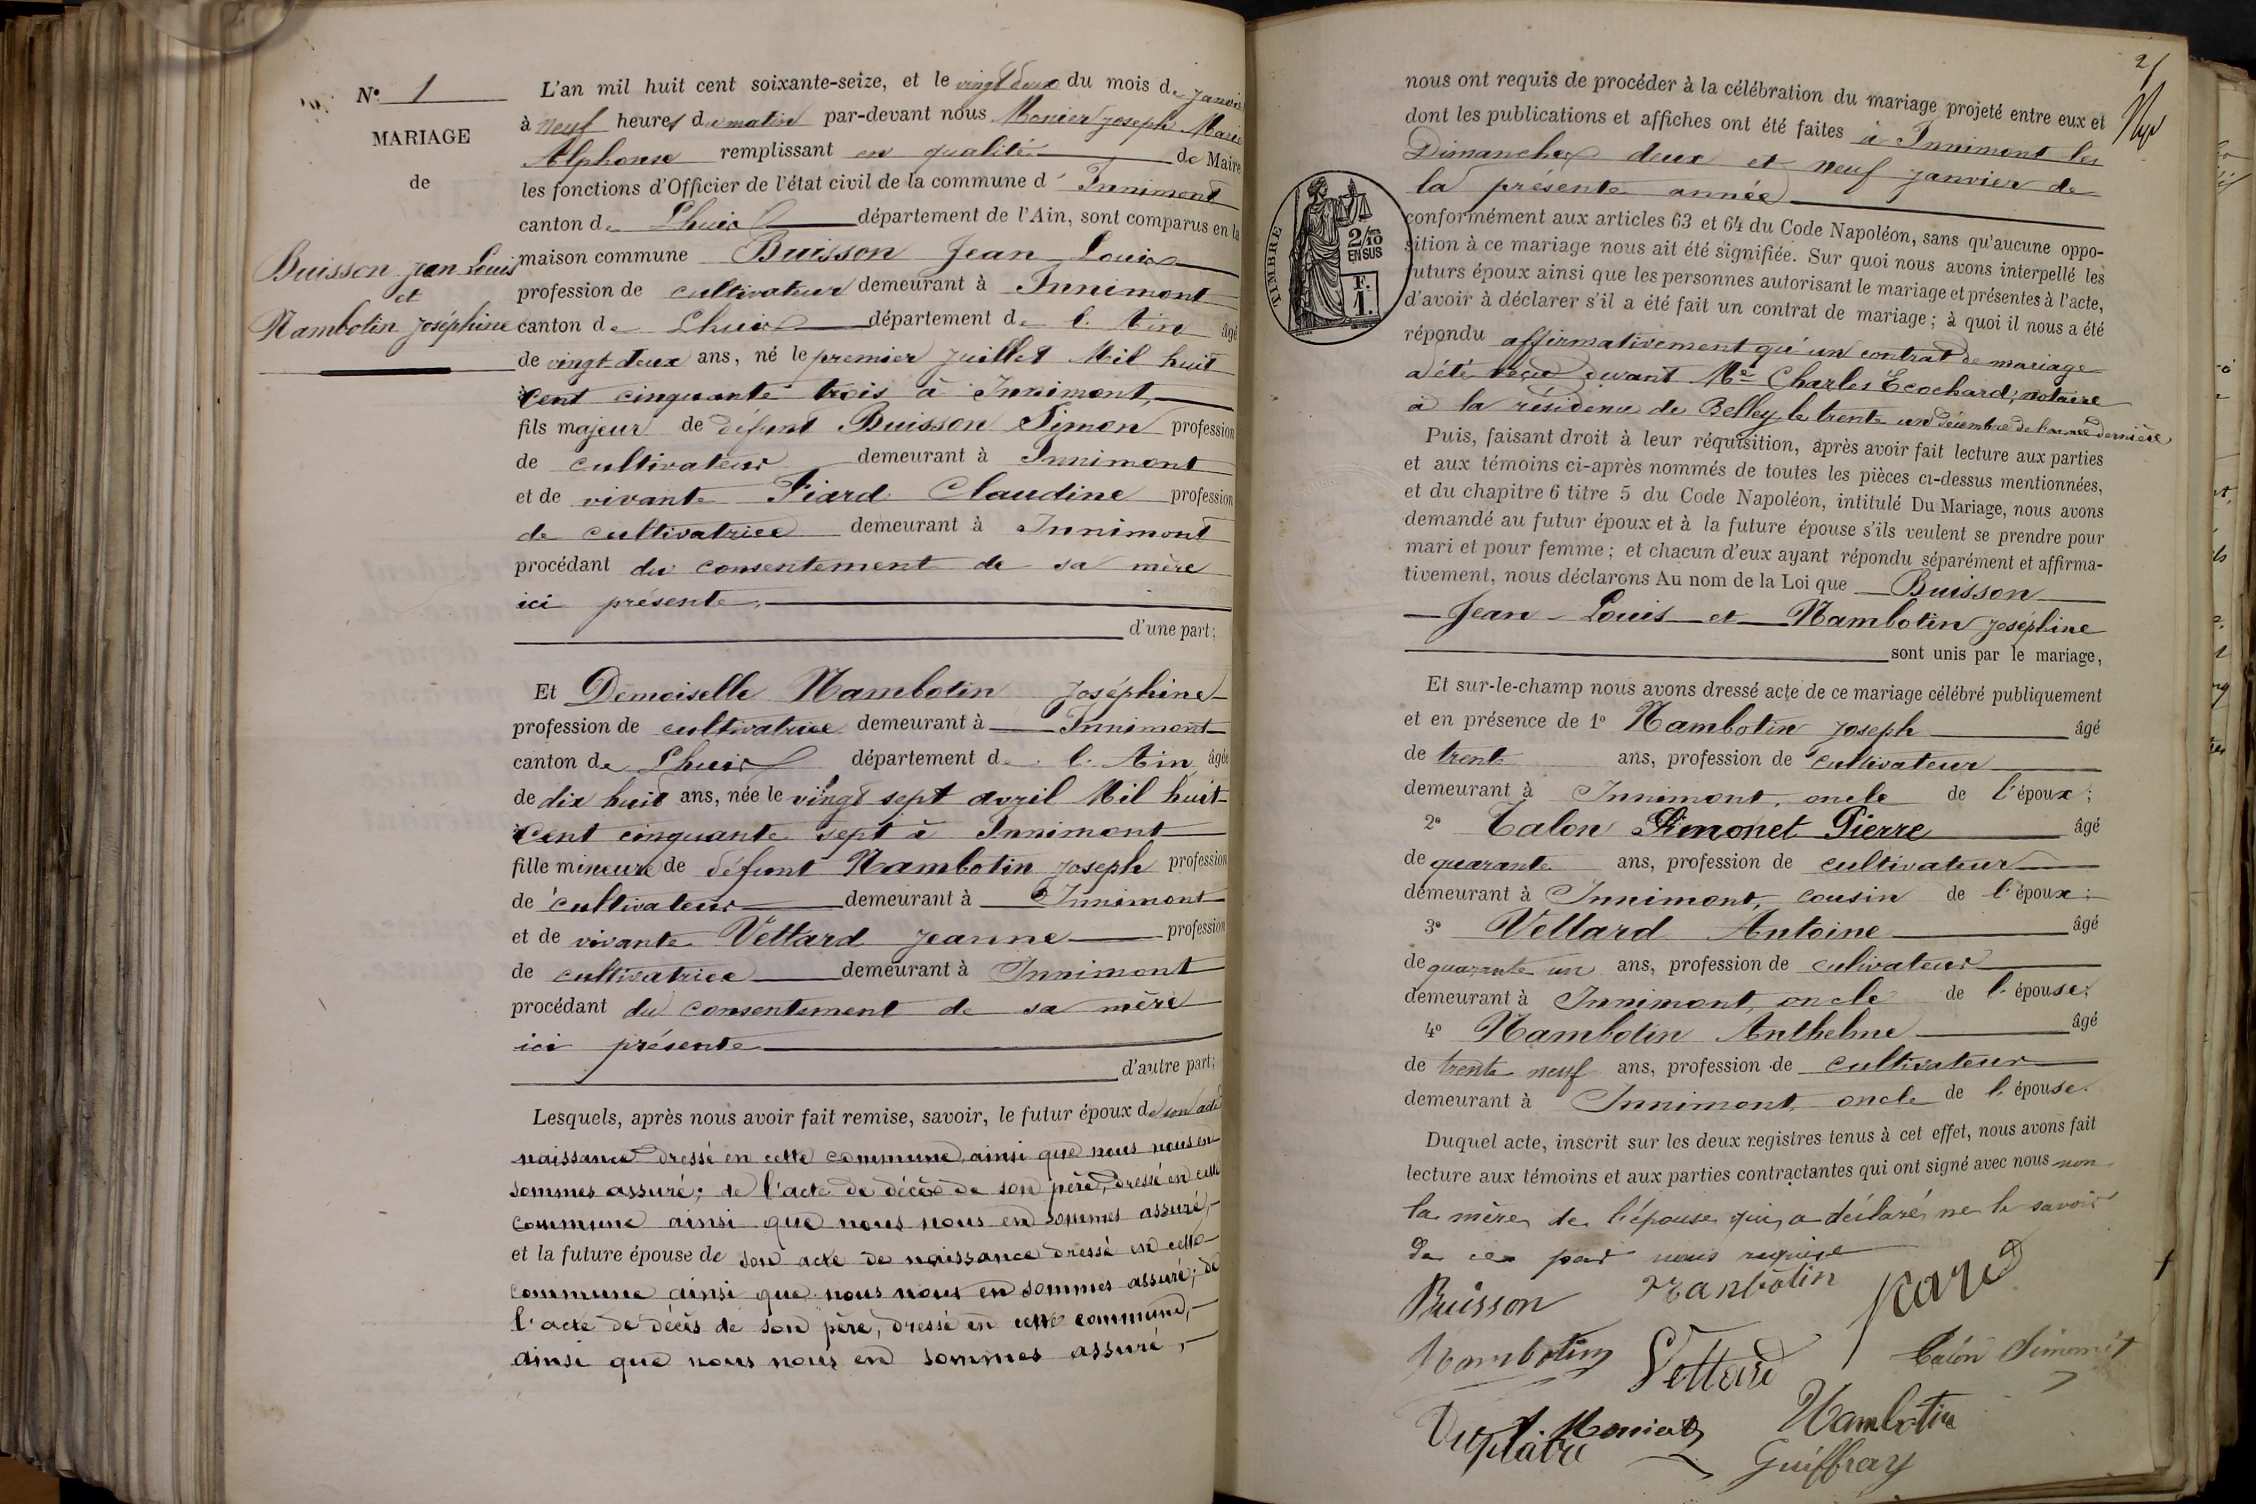 N° 1
MARIAGE
de
Buisson Jean Louis
et
Nambotin Joséphine
L'an mil huit cent soixante-seize, et le vingt deux du mois de Janvier
à neuf heures du matin par-devant nous Monier Joseph Marie
Alphonse remplissant en qualité de Maire
les fonctions d'Officier de l'état civil de la commune d' Innimont
canton de Lhuis département de l'Ain, sont comparus en la
maison commune Buisson Jean Louis
profession de cultivateur demeurant à Innimont
canton de Lhuis département de l'Ain âgé
de vingt deux ans, né le premier Juillet Mil huit
cent cinquante trois à Innimont,
fils majeur de défunt Buisson Simon profession
de cultivateur demeurant à Innimont
et de vivante Piard Claudine profession
de cultivatrice demeurant à Innimont
procédant du consentement de sa mère
ici présente,
d'une part;
Et Demoiselle Nambotin Joséphine
profession de cultivatrice demeurant à Innimont
canton de Lhuis département de l'Ain âgée
de dix huit ans, née le vingt sept avril Mil huit
cent cinquante sept à Innimont
fille mineure de défunt Nambotin Joseph profession
de cultivateur demeurant à Innimont
et de vivante Vettard Jeanne profession
de cultivatrice demeurant à Innimont
procédant du consentement de sa mère
ici présente
d'autre part;
Lesquels, après nous avoir fait remise, savoir, le futur époux de son acte
naissance dressé en cette commune, ainsi que nous nous en
sommes assuré; de l'acte de décès de son père, dressé en cette
commune ainsi que nous nous en sommes assuré,
et la future épouse de son acte de naissance dressé en cette
commune ainsi que nous nous en sommes assuré; de
l'acte de décès de son père, dressé en cette commune,
ainsi que nous nous en sommes assuré,
2
nous ont requis de procéder à la célébration du mariage projeté entre eux et
dont les publications et affiches ont été faites à Innimont les
Dimanches deux et neuf janvier de
la présente année
conformément aux articles 63 et 64 du Code Napoléon, sans qu'aucune oppo-
sition à ce mariage nous ait été signifiée. Sur quoi nous avons interpellé les
futurs époux ainsi que les personnes autorisant le mariage et présentes à l'acte,
d'avoir à déclarer s'il a été fait un contrat de mariage; à quoi il nous a été
répondu affirmativement qu'un contrat de mariage
a été reçu devant Me Charles Ecochard, notaire
à la résidence de Belley le trente un décembre de l'année dernière
TIMBRE
2/10 EN SUS
F. 1.
Puis, faisant droit à leur réquisition, après avoir fait lecture aux parties
et aux témoins ci-après nommés de toutes les pièces ci-dessus mentionnées,
et du chapitre 6 titre 5 du Code Napoléon, intitulé Du Mariage, nous avons
demandé au futur époux et à la future épouse s'ils veulent se prendre pour
mari et pour femme; et chacun d'eux ayant répondu séparément et affirma-
tivement, nous déclarons Au nom de la Loi que Buisson
Jean-Louis et Nambotin Joséphine
sont unis par le mariage,
Et sur-le-champ nous avons dressé acte de ce mariage célébré publiquement
et en présence de 1° Nambotin Joseph âgé
de trente ans, profession de cultivateur
demeurant à Innimont, oncle de l'époux;
2° Calon Simonet Pierre âgé
de quarante ans, profession de cultivateur
demeurant à Innimont, cousin de l'époux;
3° Vettard Antoine âgé
de quarante un ans, profession de culivateur
demeurant à Innimont, oncle de l'épouse;
4° Nambotin Anthelme âgé
de trente neuf ans, profession de cultivateur
demeurant à Innimont, oncle de l'épouse.
Duquel acte, inscrit sur les deux registres tenus à cet effet, nous avons fait
lecture aux témoins et aux parties contractantes qui ont signé avec nous non
la mère de l'épouse qui a déclaré ne le savoir
de ce par nous requise
Buisson Nanbotin piard
Nambotin Vettard Calon Simonet
A. Monier Nambotin
Duplatre Guiffray